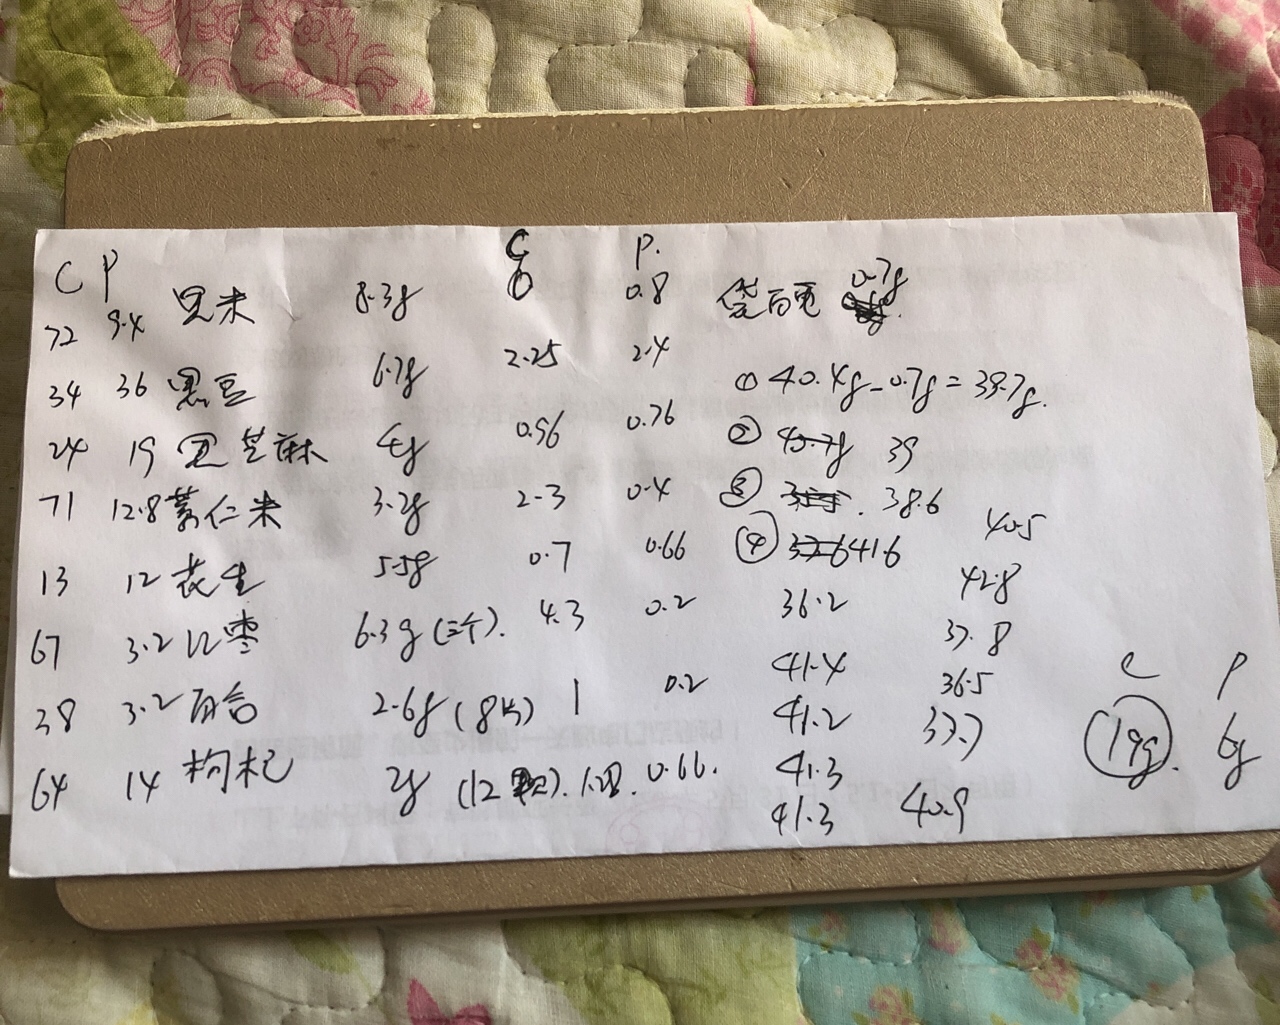 C P C P.
72 9.4 黑米 8.3g 6 0.8 袋自重 0.7g
34 36 黑豆 6.7g 2.25 2.4
① 40.4g-0.7g=39.7g.
24 19 黑芝麻 4g 0.96 0.76
② 40.7g 39
71 12.8 薏仁米 3.2g 2.3 0.4
③ 38.6
40.5
13 12 花生 5.5g 0.7 0.66
④ 37.6 41.6
42.8
67 3.2 红枣 6.3g(三个). 4.3 0.2
36.2
37.8
38 3.2 百合 2.6g(8片) 1 0.2
41.4
36.5
C P
41.2
37.7
19g. 6g
64 14 枸杞 2g (12颗). 0.66.
41.3
41.3 40.9